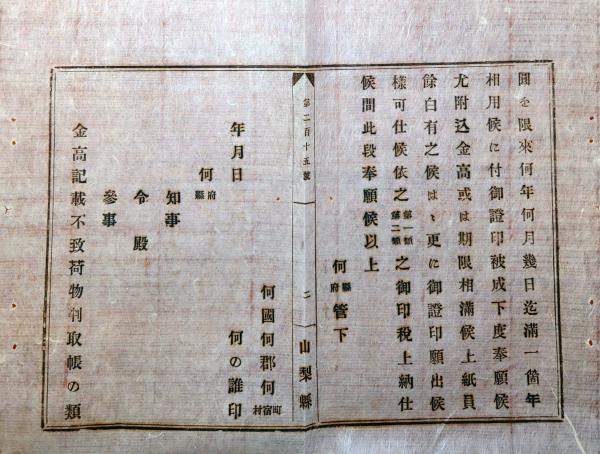 圓を限來何年何月幾日迄滿一箇年
相用候に付御證印被成下度奉願候
尤附込金高或は期限相滿候上紙員
餘白有之候はゝ更に御證印願出候
樣可仕候依之第一類第二類之御印税上納仕
候間此段奉願候以上
何縣府管下
何國何郡何町宿村
何の誰印
第二百十五號
二
山梨縣
年月日
何府縣
知事
令殿
參事
金高記載不致荷物判取帳の類